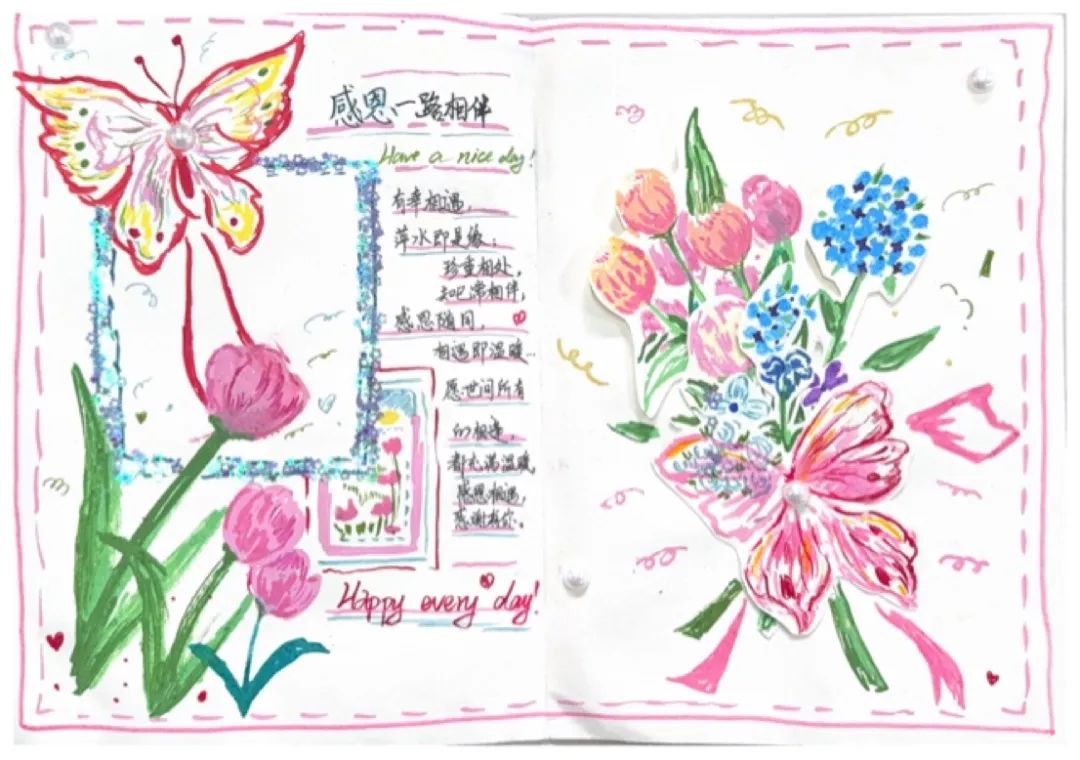 感恩一路相伴
Have a nice day!
有幸相遇,
萍水即是缘;
珍重相处,
去吧常相伴,
感恩随同,
相遇即温暖...
愿世间所有
的相逢,
都充满温暖,
感恩相遇,
感谢有你。
Happy every day!